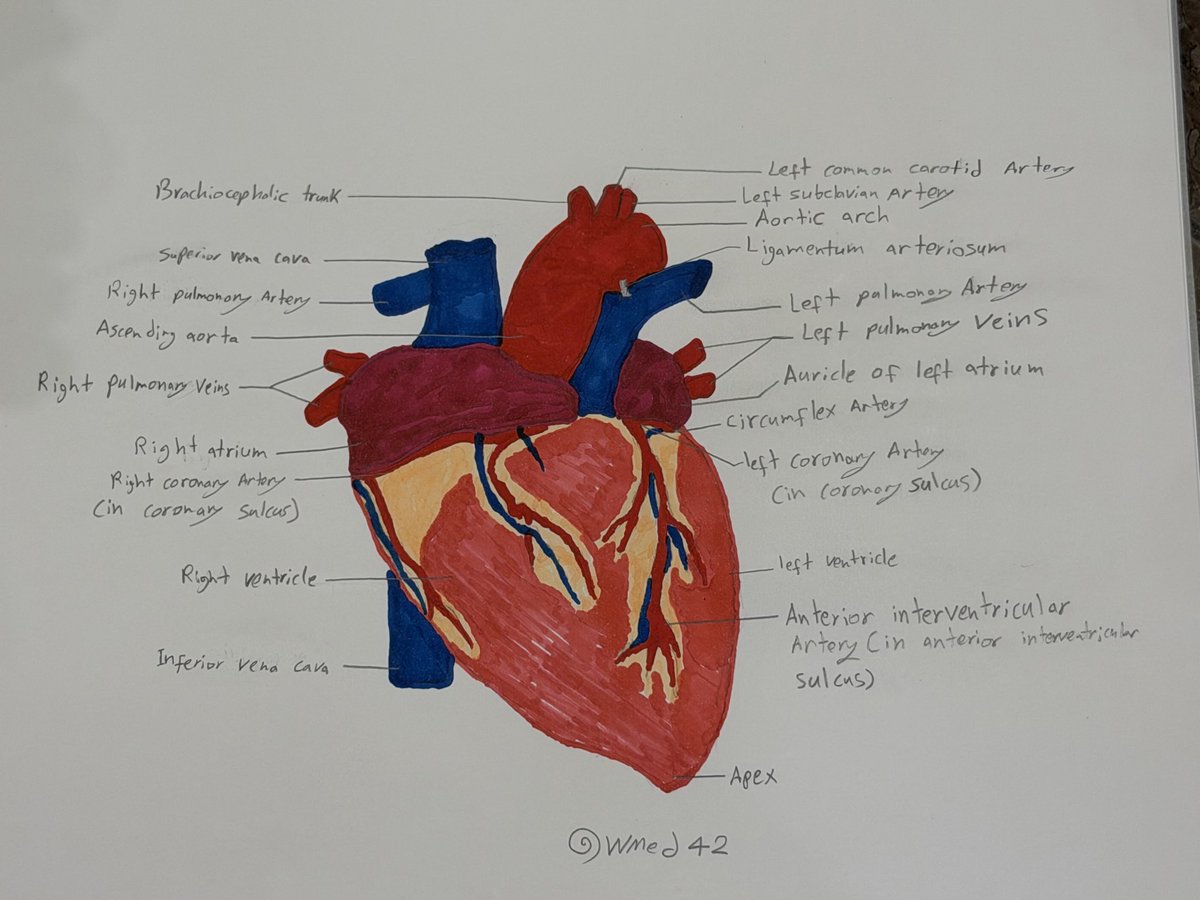 Brachiocephalic trunk
Superior vena cava
Right pulmonary Artery
Ascending aorta
Right pulmonary Veins
Right atrium
Right coronary Artery
(in coronary sulcus)
Right ventricle
Inferior vena cava
Left common carotid Artery
Left subclavian Artery
Aortic arch
Ligamentum arteriosum
Left pulmonary Artery
Left pulmonary Veins
Auricle of left atrium
Circumflex Artery
left coronary Artery
(in coronary sulcus)
left ventricle
Anterior interventricular
Artery (in anterior interventricular
sulcus)
Apex
WMed 42